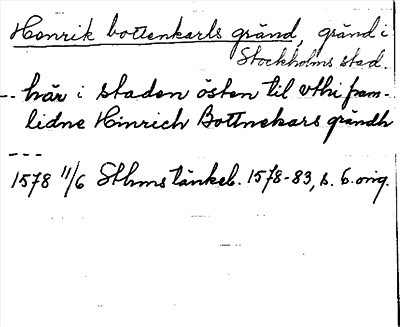 Henrik bottenkarls gränd, gränd i
Stockholms stad.
-- här i staden östen til vthi fram-
lidne Hinrich Bottnekars grändh
---
1578 11/6 Sthms tänkeb. 1578-83, s. 6. orig.